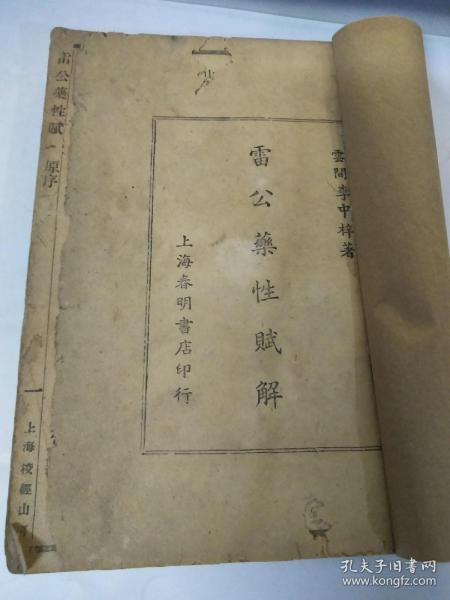 雲間李中梓著
雷公藥性賦解
上海春明書店印行
雷公藥性賦
原序
一
上海校經山
孔夫子旧书网
www.kongfz.com